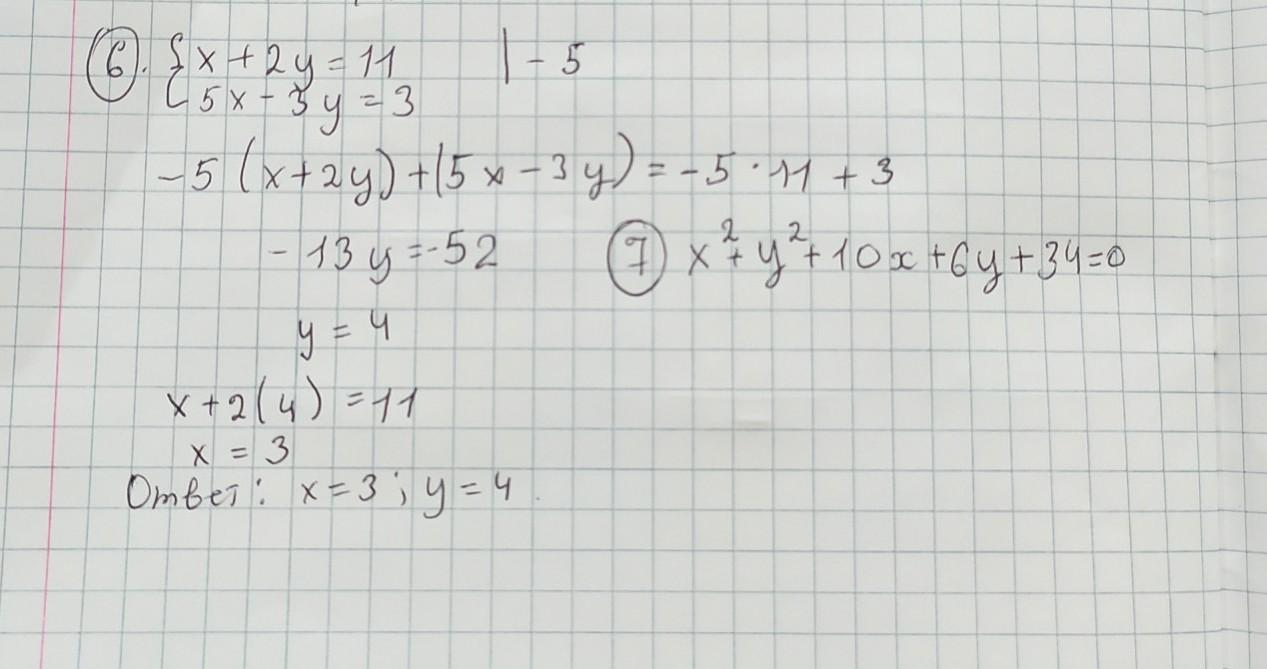 6. { x + 2y = 11 | - 5
{ 5x - 3y = 3
-5 (x+2y) + (5x - 3y) = -5 · 11 + 3
- 13y = -52
y = 4
x + 2(4) = 11
x = 3
Ответ: x = 3 ; y = 4.
7 x² + y² + 10x + 6y + 34 = 0